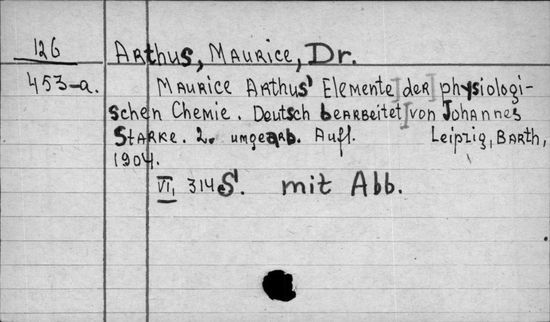 126 Arthus, Maurice, Dr.
453-a. Maurice Arthus' Elemente] der] physiologi-
schen Chemie. Deutsch bearbeitet] von Johannes
Starke. 2. umgearb. Aufl. Leipzig, Barth,
1904.
VI, 314 S. mit Abb.